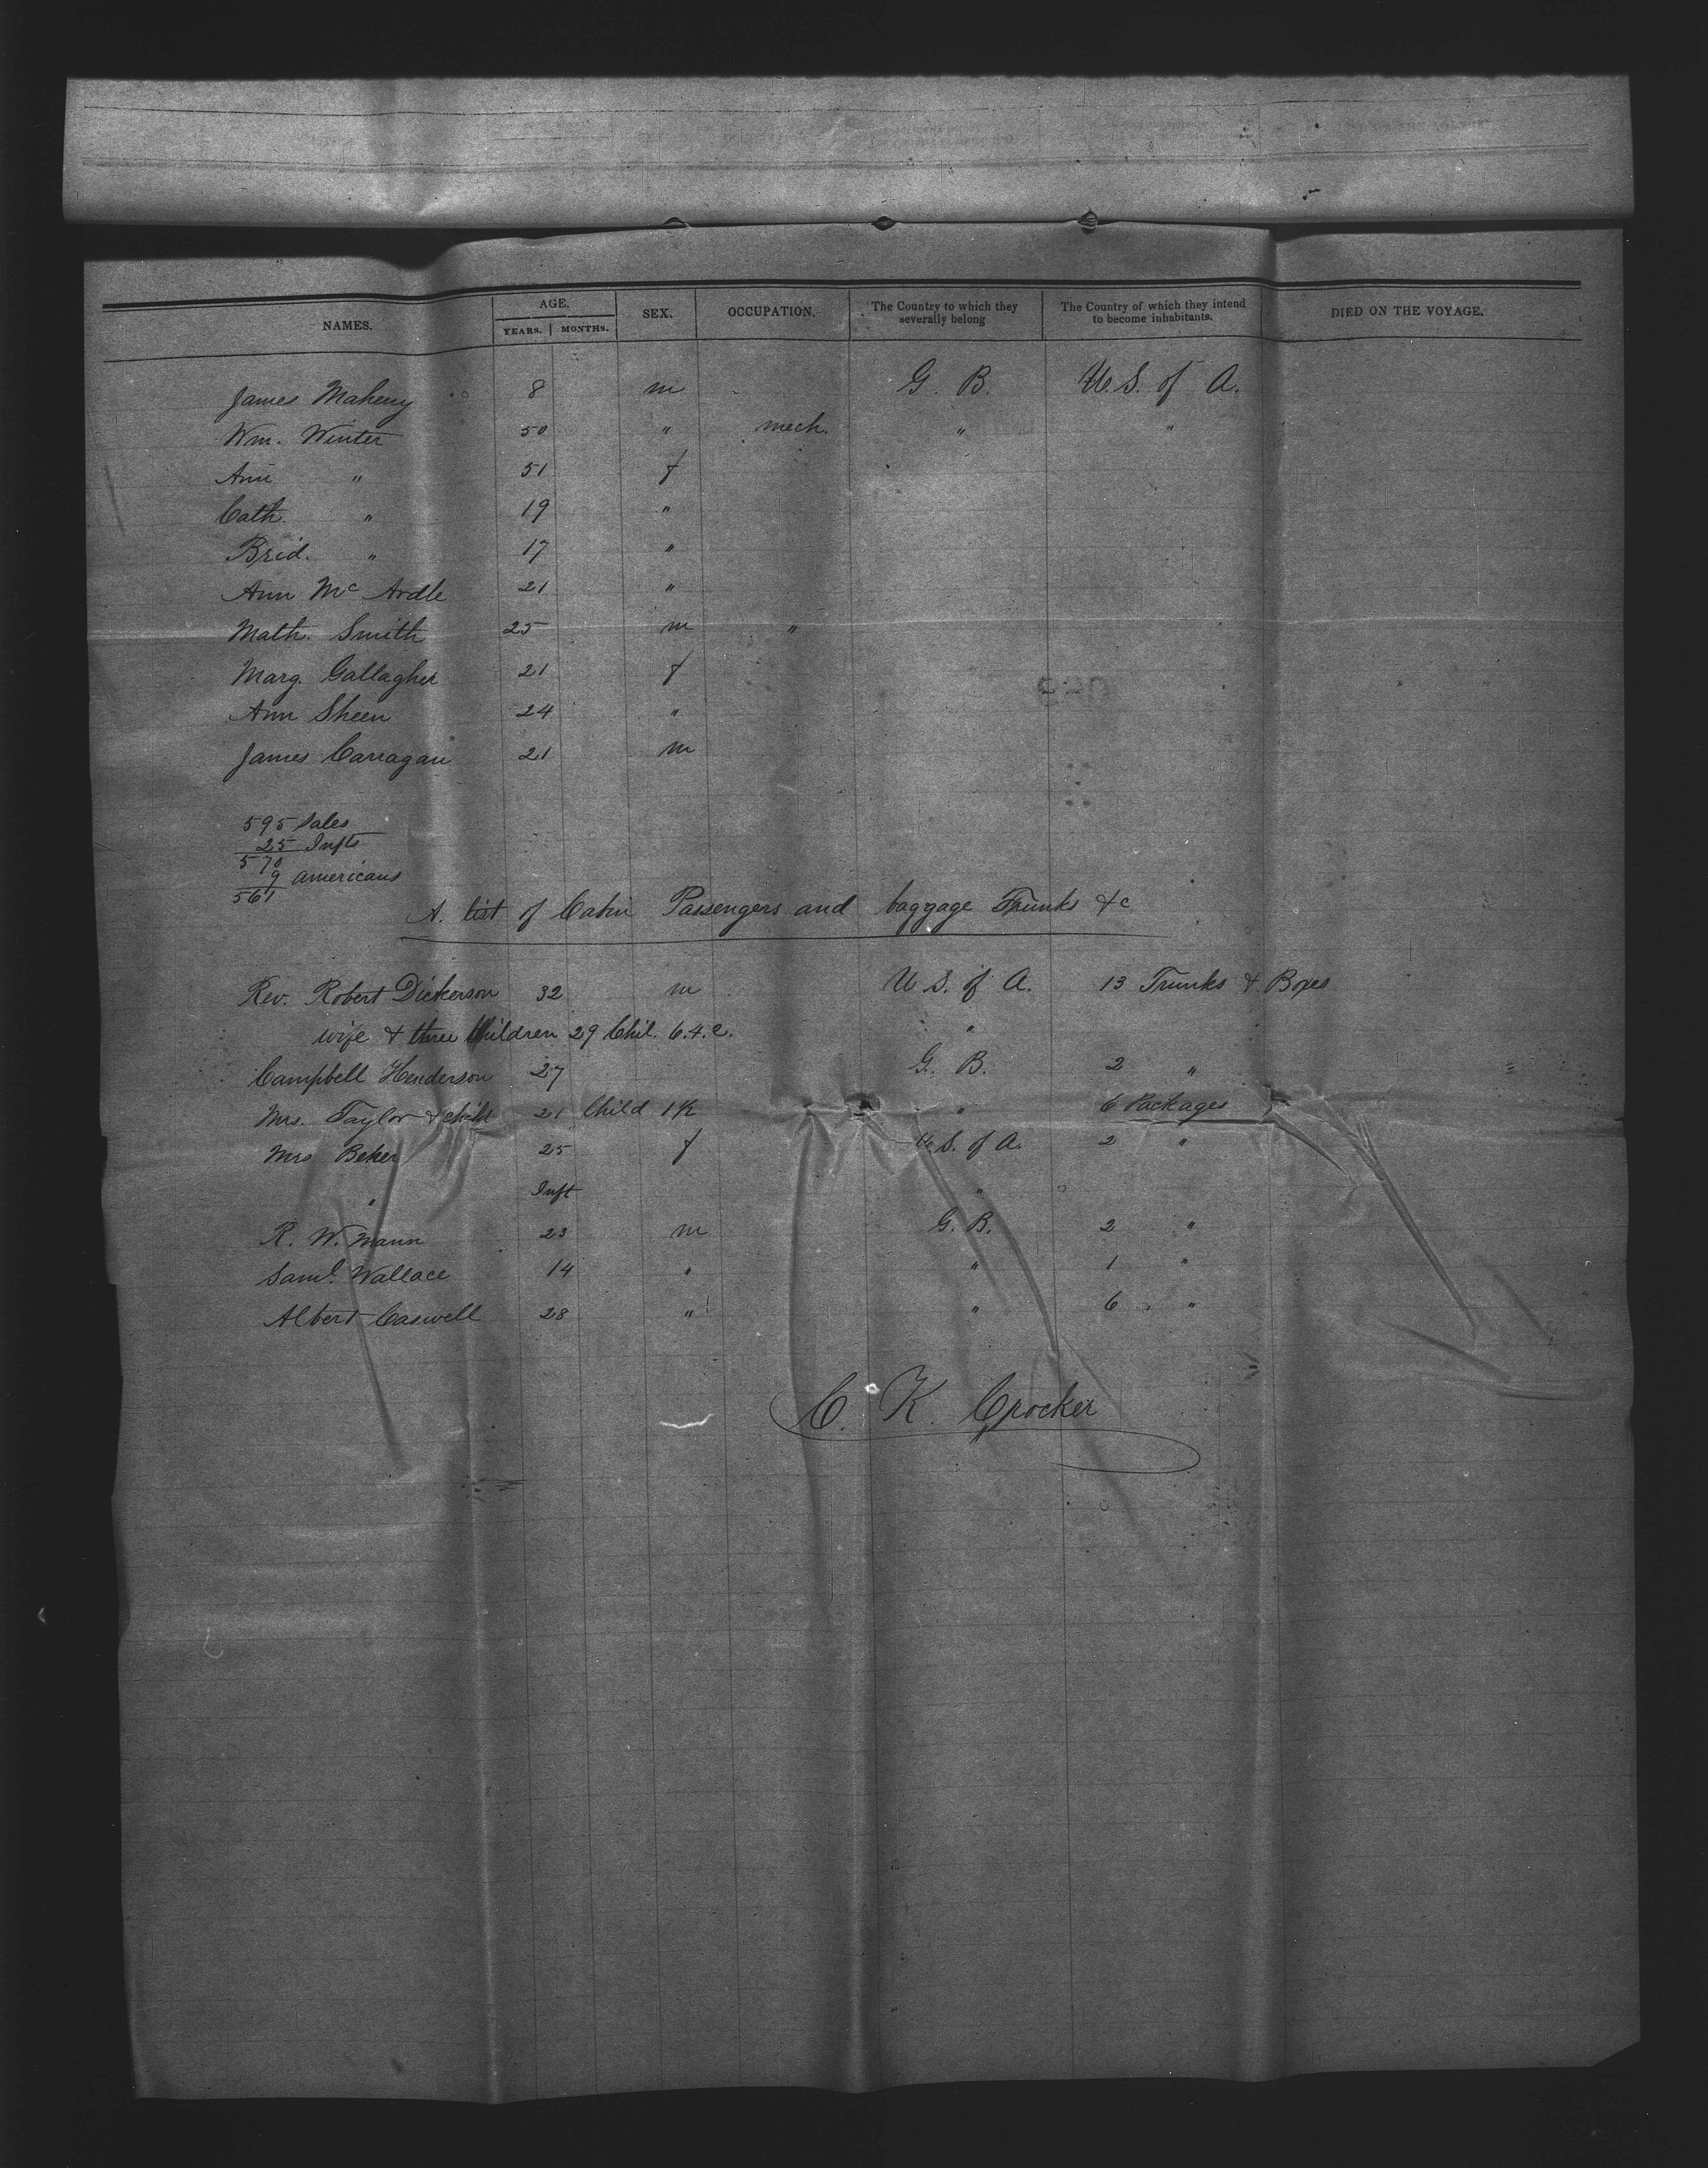 NAMES. AGE. YEARS. MONTHS. SEX. OCCUPATION. The Country to which they severally belong The Country of which they intend to become inhabitants. DIED ON THE VOYAGE.
James Maheny 8 m G. B. U.S. of A.
Wm. Winter 50 " mech. " "
Ann " 51 f
Cath. " 19 "
Brid. " 17 "
Ann McArdle 21 "
Math. Smith 25 m "
Marg. Gallagher 21 f
Ann Sheen 24 "
James Carragan 21 m
595 Sales
25 Infts
570
9 americans
561
A. list of Cabin Passengers and baggage Trunks &c
Rev. Robert Dickerson 32 m U.S. of A. 13 Trunks & Boxes
wife & three Children 29 Chil. 6.4.2. "
Campbell Henderson 27 G. B. 2 "
Mrs. Taylor & child 21 Child 1½ " 6 Packages
Mrs Beker 25 f U.S. of A. 2 "
" Inft "
R. W. Mann 23 m G. B. 2 "
Saml. Wallace 14 " " 1 "
Albert Caswell 28 " " 6 "
C. K. Crocker